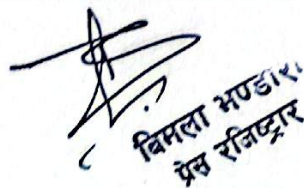 विमला भण्डारी
प्रेस रजिष्ट्रार